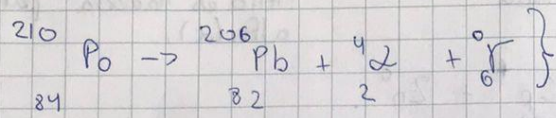 ²¹⁰₈₄Po -> ²⁰⁶₈₂Pb + ⁴₂α + ⁰₀γ }